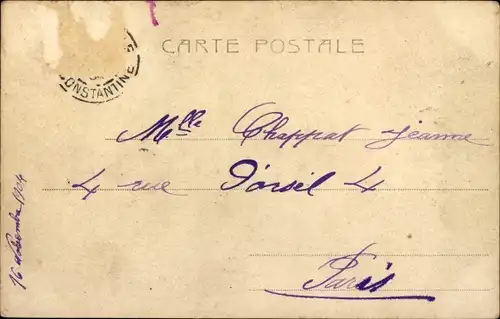 CARTE POSTALE
CONSTANTINE
Mlle Chappat Jeanne
4 rue d'orsel 4
Paris
16 Novembre 1904